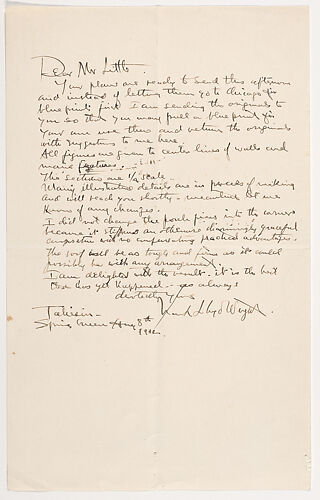 Dear Mr Little.
Your plans are ready to send this afternoon
and instead of letting them go to Chicago for
blueprints first I am sending the originals to
you so that you may pull a blueprint for
your own use there and return the originals
with suggestions to me here.
All figures are given to center lines of walls and
main
The sections are 1/2 scale.
Many illustrated details are in process of making
and will reach you shortly - meanwhile let me
know of any changes.
I did not change the porch piers into the corners
because it stiffens an otherwise charmingly graceful
composition with no compensating practical advantages.
The roof will be as tough and firm as it could
possibly be with any arrangement.
I am delighted with the result. it is the best
has yet happened - as always
devotedly yours
Frank Lloyd Wright.
Taliesin -
Spring Green Aug 8th
1912.